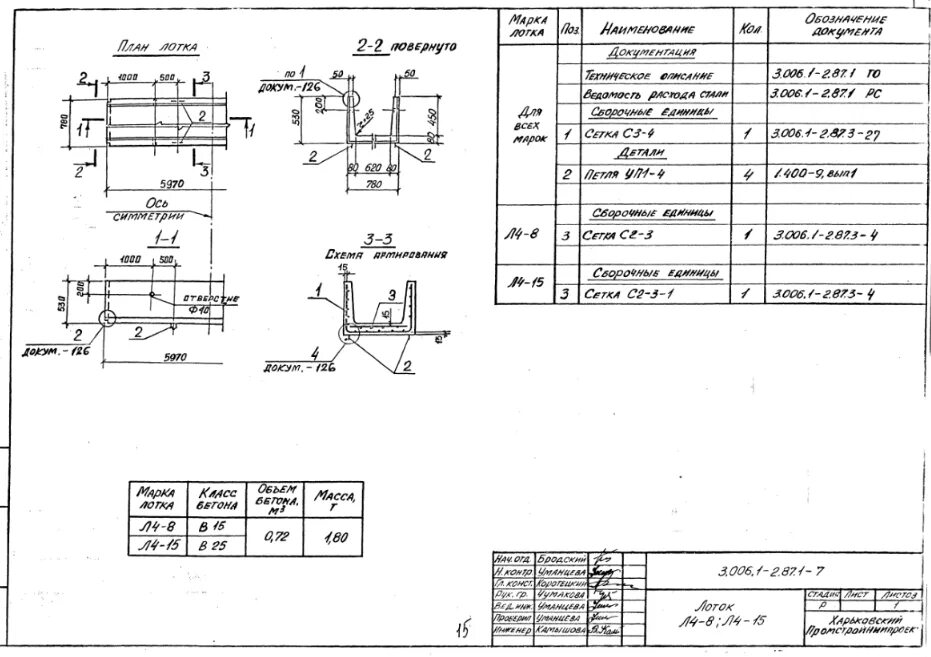 План лотка
2
1000
500
3
780
1
2
1
2
3
5970
Ось
симметрии
2-2 повернуто
по 1
докум.-126
50
50
530
200
R=25
450
80
2
2
80 620 80
780
1-1
1000
500
530
200
отверстие
Ф40
2
докум.-126
2
5970
3-3
Схема армирования
15
1
3
15
15
4
докум.-126
2
Марка лотка Поз. Наименование Кол. Обозначение документа
Для всех марок
Документация
Техническое описание 3.006.1-2.87.1 ТО
Ведомость расхода стали 3.006.1-2.87.1 РС
Сборочные единицы
1 Сетка С3-4 1 3.006.1-2.87.3-27
Детали
2 Петля УП1-4 4 1.400-9, вып1
Сборочные единицы
Л4-8 3 Сетка С2-3 1 3.006.1-2.87.3-4
Л4-15 Сборочные единицы
3 Сетка С2-3-1 1 3.006.1-2.87.3-4
Марка лотка Класс бетона Объем бетона, м3 Масса, т
Л4-8 В 15 0,72 1,80
Л4-15 В 25
15
Нач.отд. Бродский
Н.контр Уманцева
Гл. конст. Коротецкий
Рук. гр. Чумакова
Вед. инж. Уманцева
Проверил Уманцева
Инженер Камышова
3.006.1-2.87.1-7
Лоток
Л4-8; Л4-15
Стадия Лист Листов
Р 1
Харьковский
Промстройниипроект